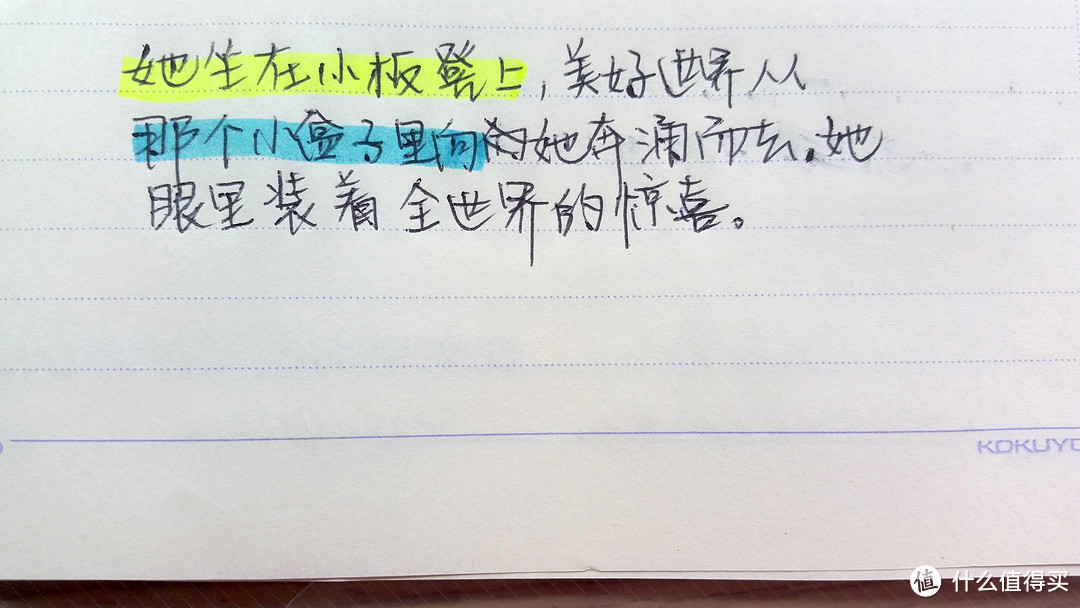 她坐在小板凳上,美好世界从
那个小盒子里向她奔涌而去,她
眼里装着全世界的惊喜。
KOKUYO
值 什么值得买